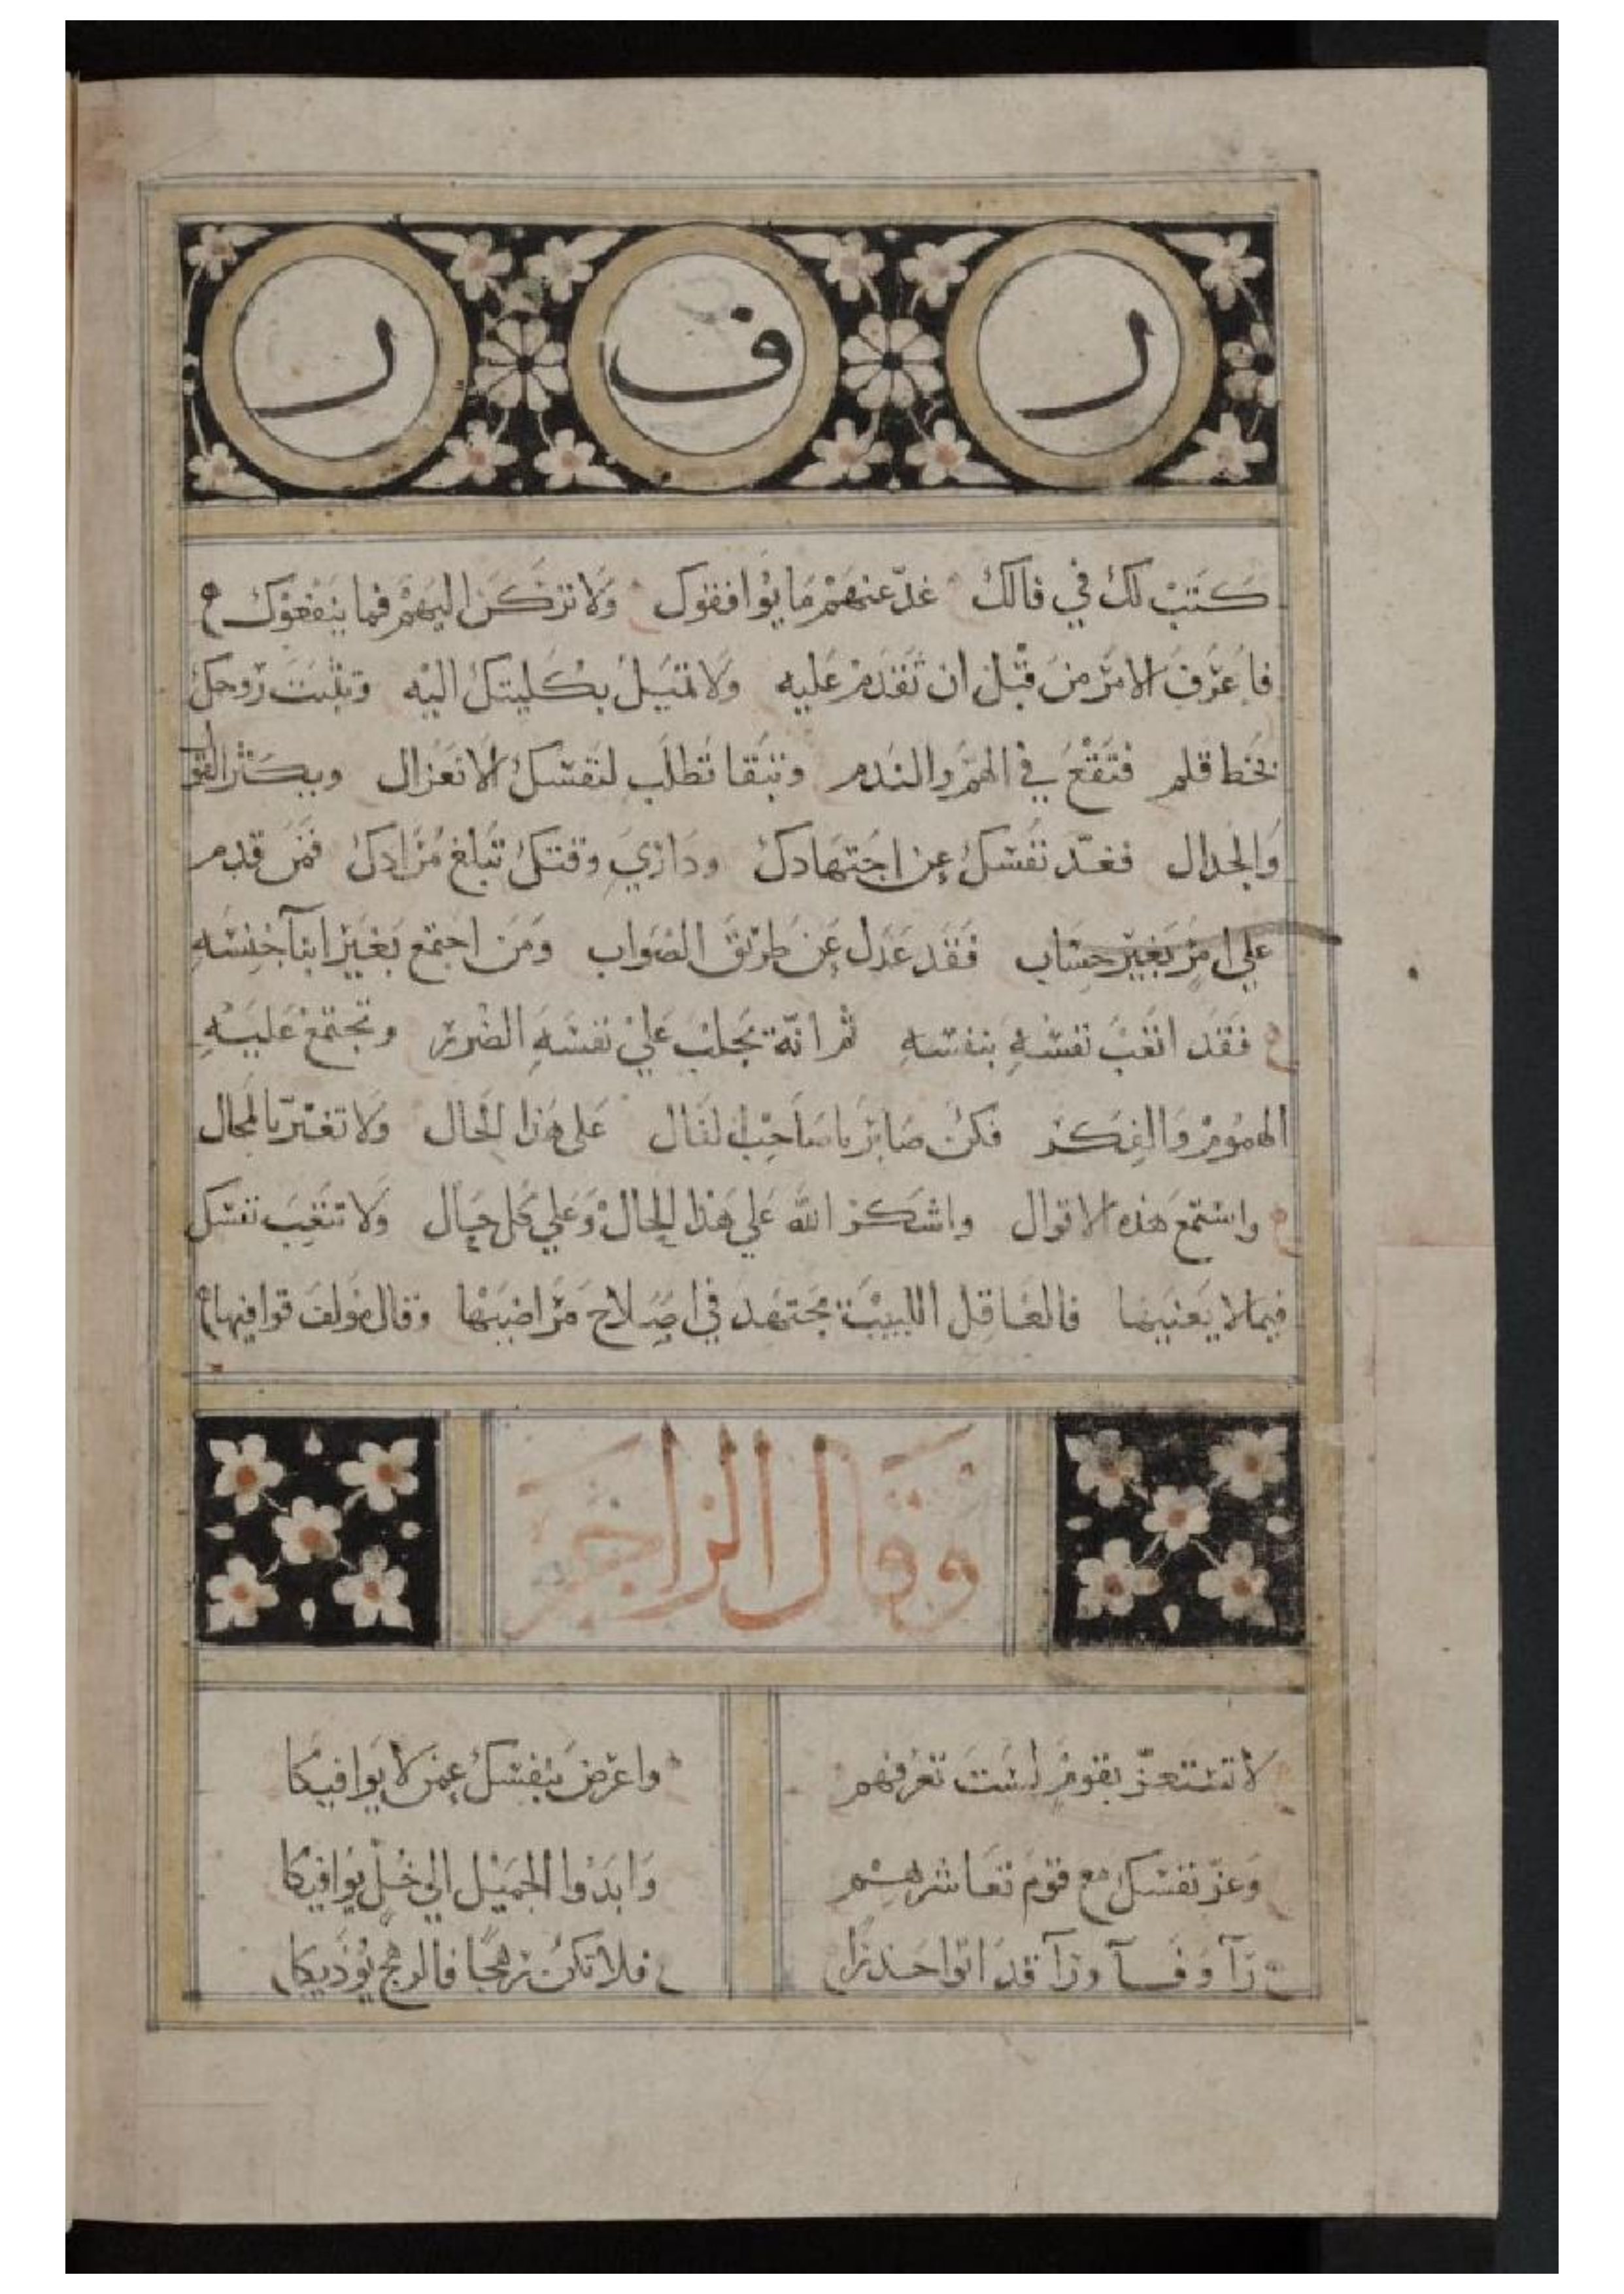 ر ف ر
كتب لك في فالك غدّ عنهم ما يوافقوك ولا تركن اليهم فما ينفعوك
فاعرف الامر من قبل ان تقدم عليه ولا تميل بكليتك اليه وتثبت روحك
بخط قلم فتقع في الهم والندم وتبقا تطلب لنفسك الانعزال ويكثر القو
والجدال فغدّ نفسك عن اجتهادك وداري وقتك تبلغ مرادك فمن قدم
علي امر بغير حساب فقد عدل عن طريق الصواب ومن اجتمع بغير ابنآ جنسه
فقد اتعب نفسه بنفسه ثم انه يجلب علي نفسه الضرر وتجتمع عليه
الهموم والفكر فكن صابر يا صاحب الفال على هذا الحال ولا تغتر بالمحال
واستمع هذه الاقوال واشكر الله علي هذا الحال وعلي كل حال ولا تتعب نفسك
فيما لا يعنيها فالعاقل اللبيب يجتهد في اصلاح مراضيها وقال مولف قوافيها
وقال الزاجر
لا تستعز بقوم لست تعرفهم واعرض بنفسك عمن لا يوافيكا
وعز نفسك مع قوم تعاشرهم وابدوا الجميل الي خل يوافيكا
رآ وفآ ورآ قد اتوا حذرا فلا تكن رهجا فالرهج يوذيكا